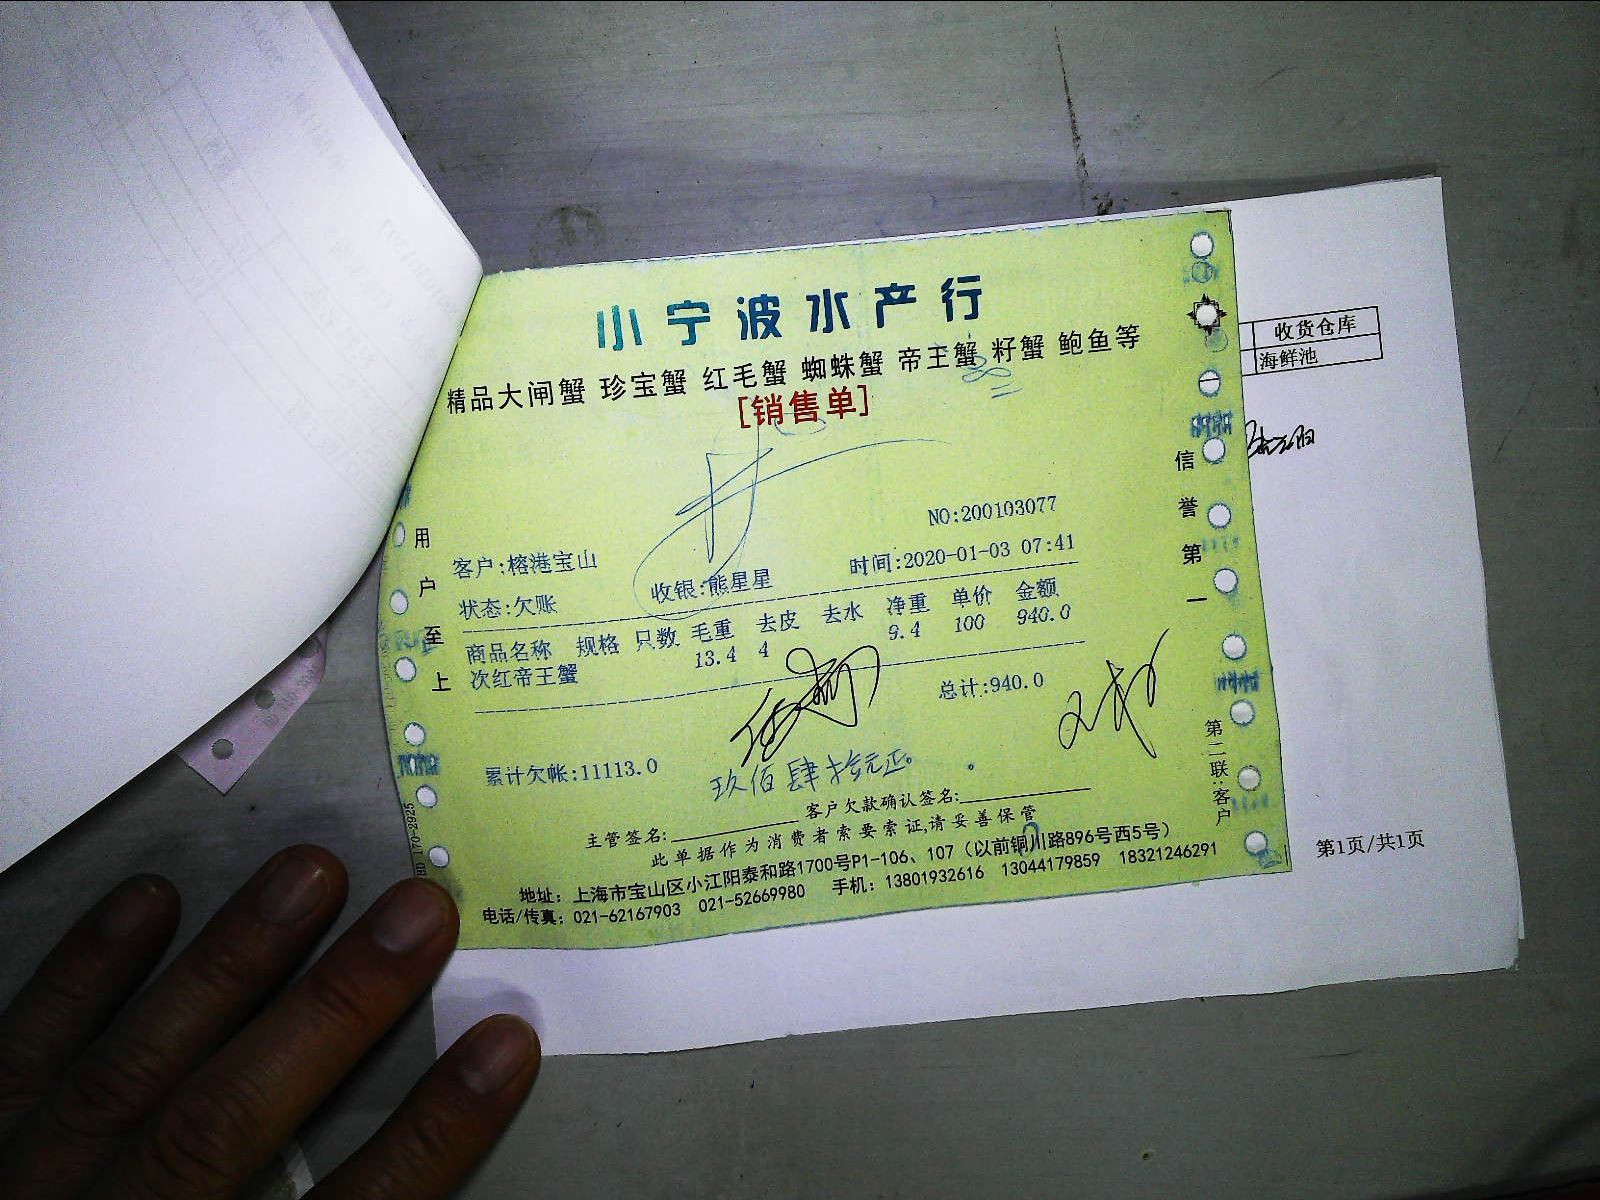 小宁波水产行
精品大闸蟹 珍宝蟹 红毛蟹 蜘蛛蟹 帝王蟹 籽蟹 鲍鱼等
[销售单]
NO:200103077
客户:榕港宝山
时间:2020-01-03 07:41
状态:欠账
收银:熊星星
商品名称 规格 只数 毛重 去皮 去水 净重 单价 金额
次红帝王蟹 13.4 4 9.4 100 940.0
总计:940.0
累计欠帐:11113.0
玖佰肆拾元正
主管签名: 客户欠款确认签名:
此单据作为消费者索要索证,请妥善保管
地址:上海市宝山区小江阳泰和路1700号P1-106、107(以前铜川路896号西5号)
电话/传真:021-62167903 021-52669980 手机:13801932616 13044179859 18321246291
用户至上
信誉第一
第二联:客户
170-2925
收货仓库
海鲜池
第1页/共1页